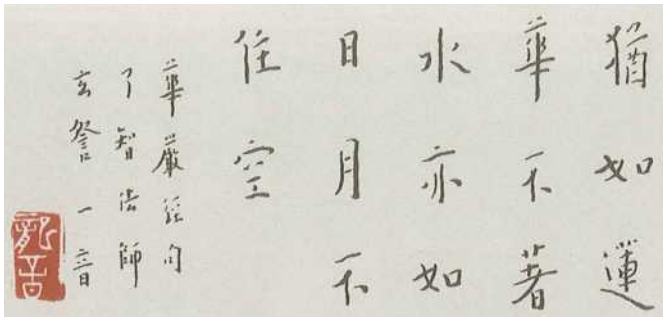 猶如蓮
華不著
水亦如
日月不
住空
華嚴經句
了智法師
玄詧一音
龍音